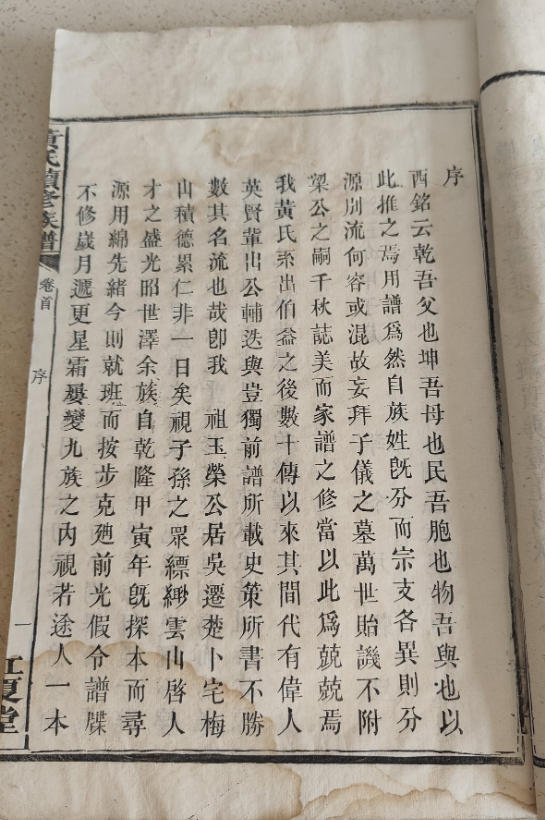 序
西銘云乾吾父也坤吾母也民吾胞也物吾與也以
此推之焉用譜爲然自族姓旣分而宗支各異則分
源別流何容或混故妄拜子儀之墓萬世貽譏不附
梁公之嗣千秋誌美而家譜之修當以此爲兢兢焉
我黃氏系出伯益之後數十傳以來其間代有偉人
英賢輩出公輔迭興豈獨前譜所載史策所書不勝
數其名流也哉卽我 祖玉榮公居吳遷楚卜宅梅
山積德累仁非一日矣視子孫之眾縹緲雲山啓人
才之盛光昭世澤余族自乾隆甲寅年旣探本而尋
源用綿先緒今則就班而按步克廸前光假令譜牒
不修歲月遞更星霜屢變九族之內視若途人一本
黃氏續修族譜
卷首
序
一
江夏堂